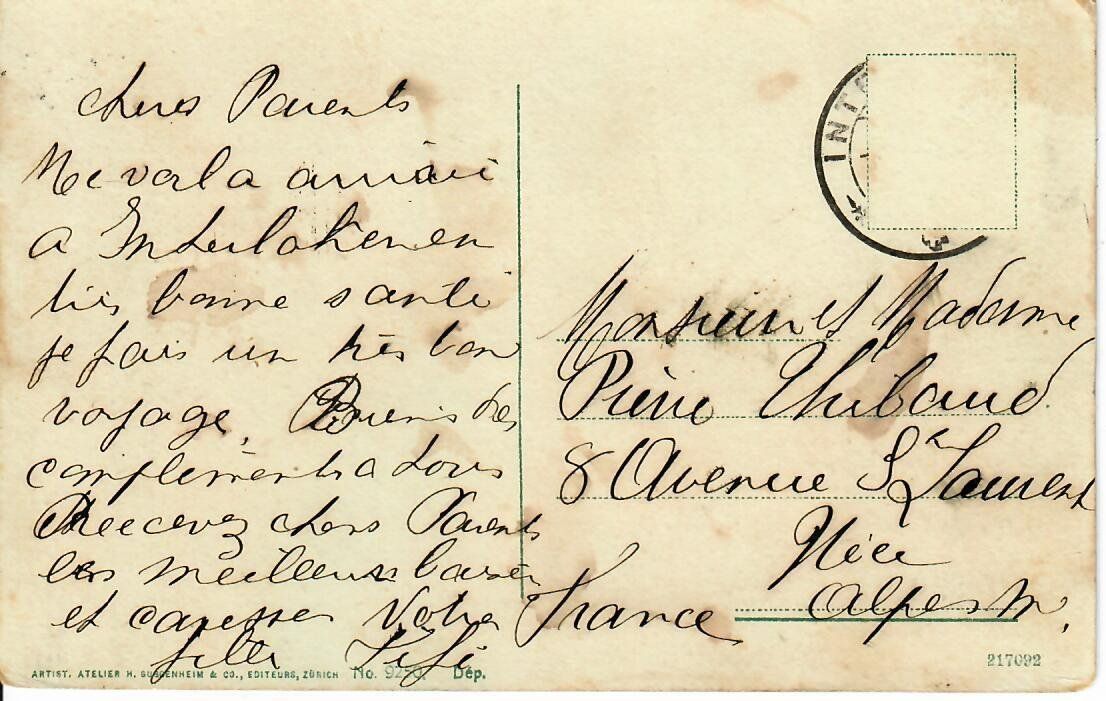 chers Parents
Me voila arrivé
a Interlaken en
très bonne santé
je fais un très bon
voyage. Biens des
compliments a tous
Recevez chers Parents
les meilleurs baisers
et caresses Votre
fille Fifi
INTE
Monsieur et Madame
Pierre Thibaud
8 Avenue St Laurent
Nice
Alpes M.
France
ARTIST. ATELIER H. GUGGENHEIM & CO., EDITEURS, ZÜRICH No. 9250. Dép.
217092